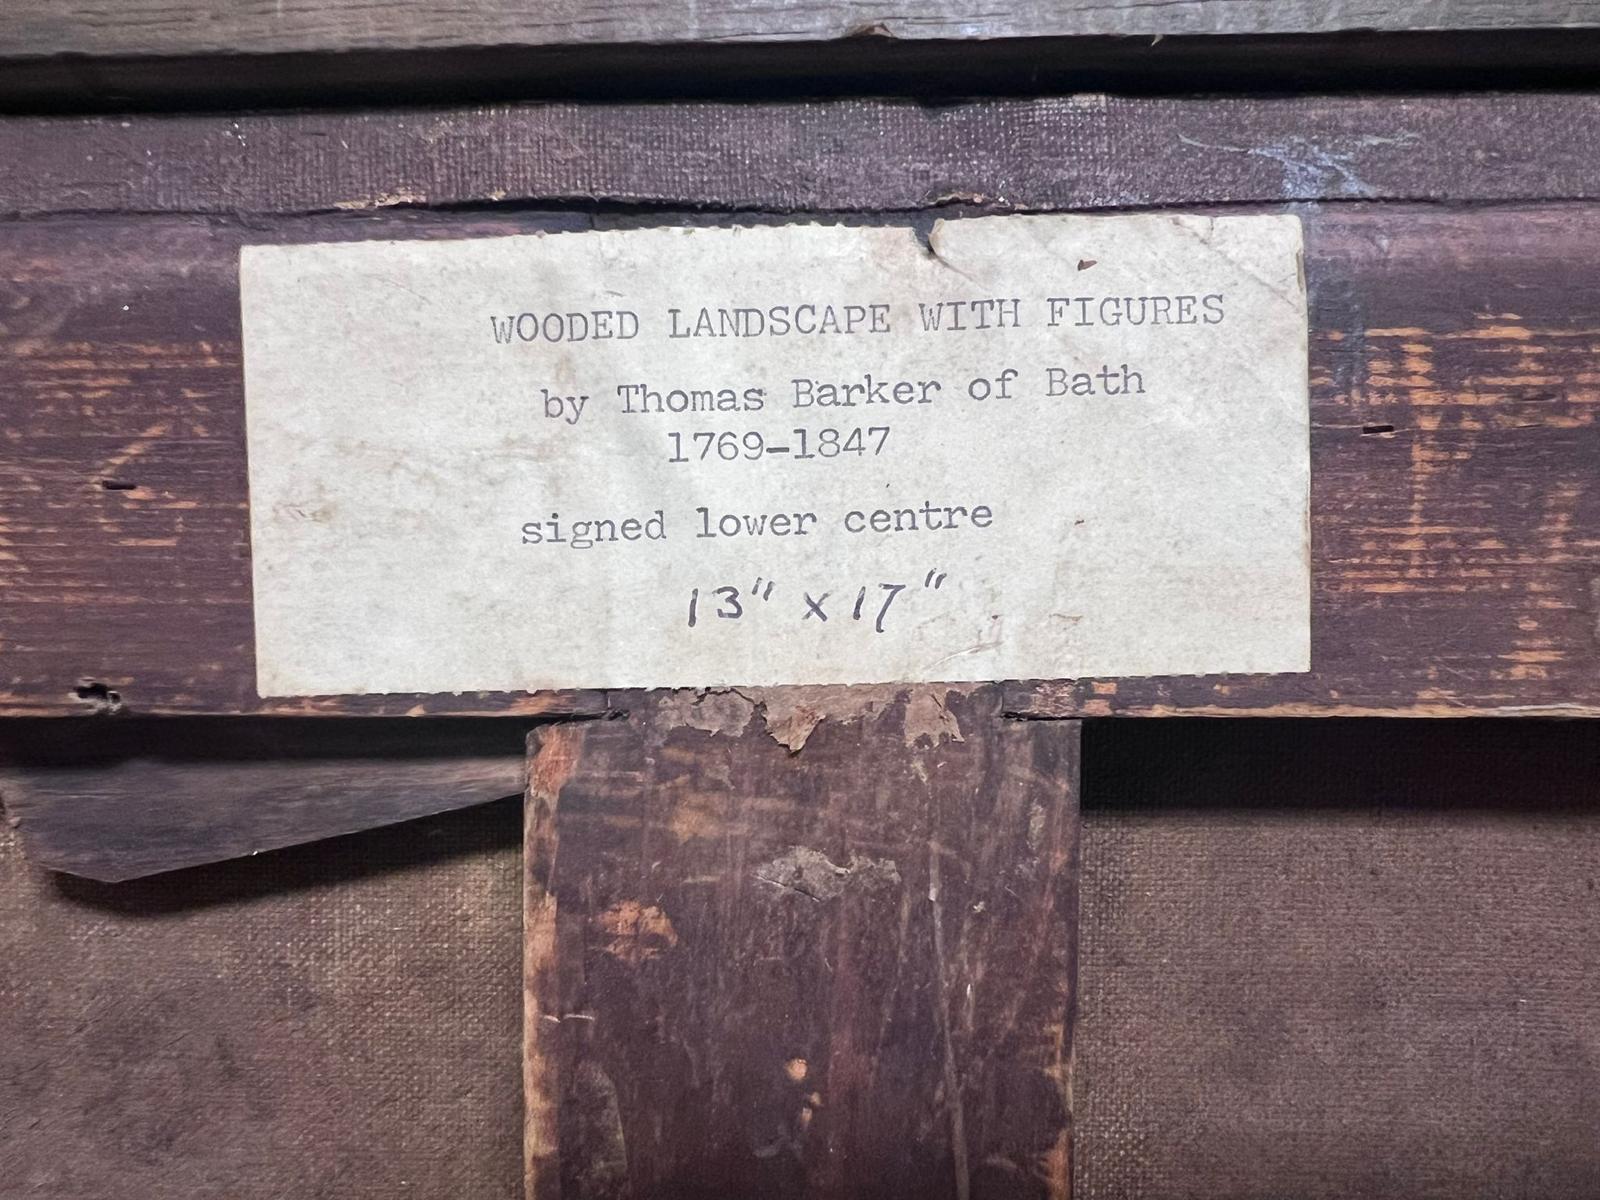 WOODED LANDSCAPE WITH FIGURES
by Thomas Barker of Bath
1769-1847
signed lower centre
13" x 17"